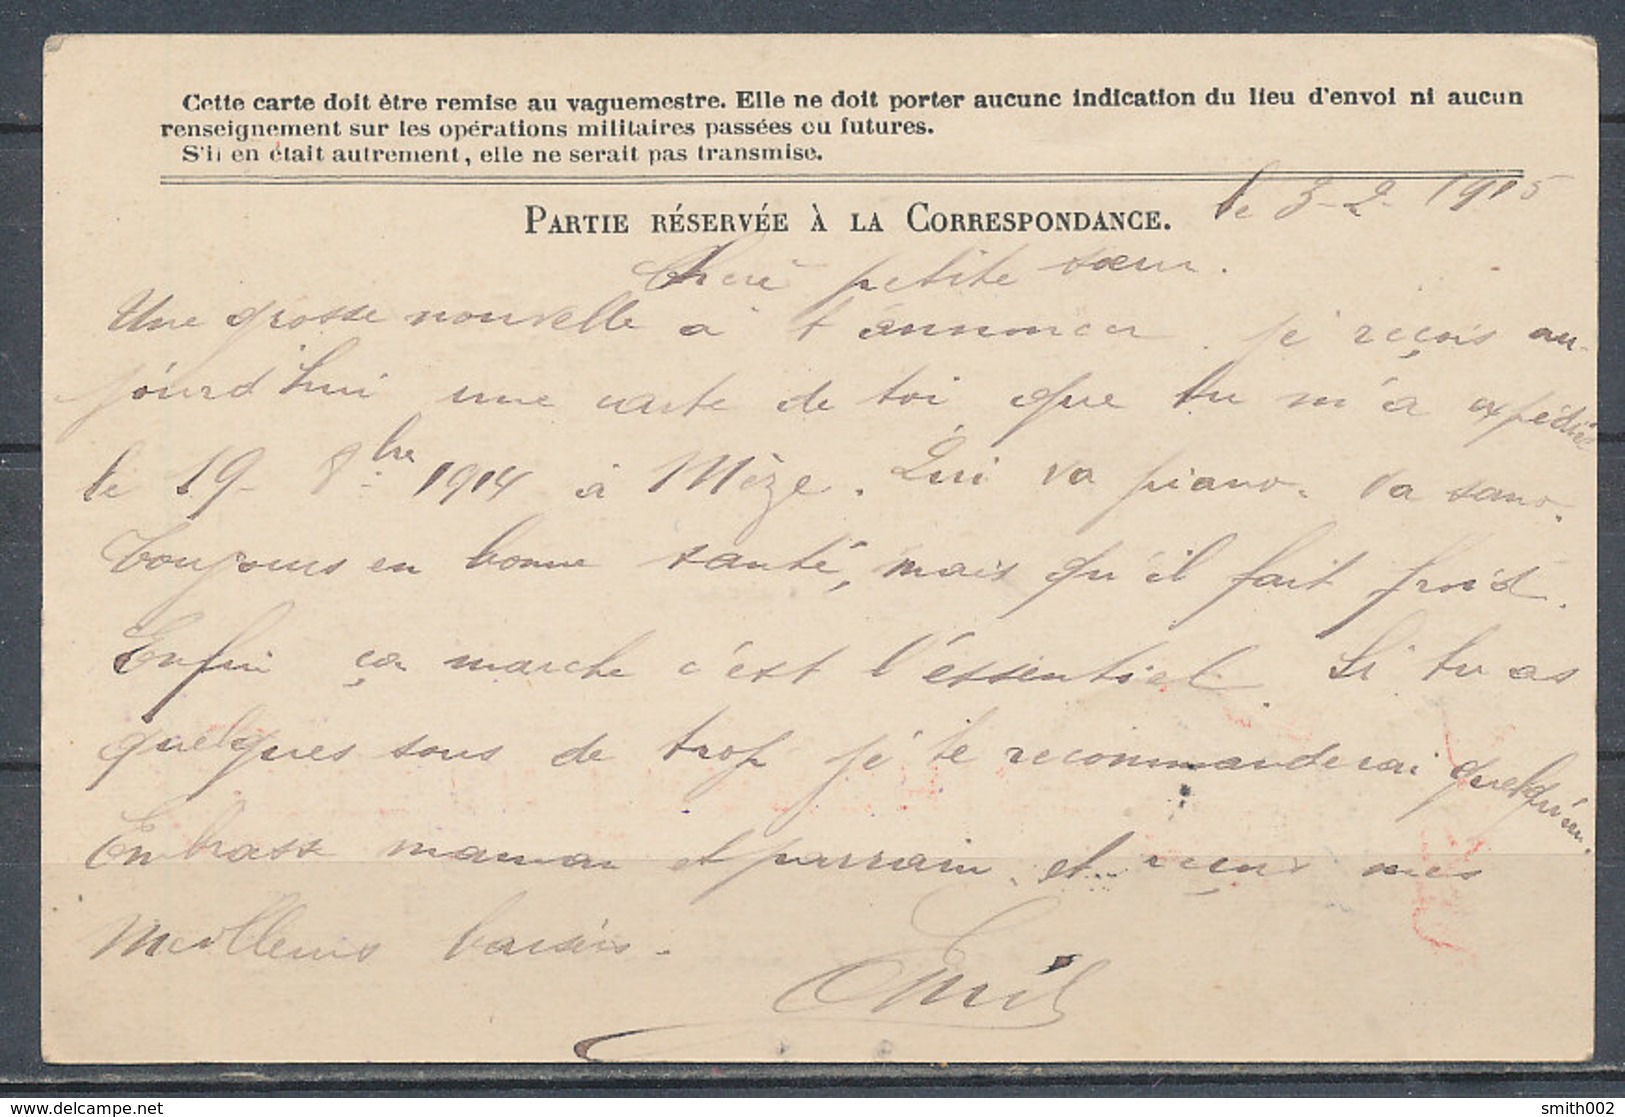 Cette carte doit être remise au vaguemestre. Elle ne doit porter aucune indication du lieu d'envoi ni aucun
renseignement sur les opérations militaires passées ou futures.
S'il en était autrement, elle ne serait pas transmise.
le 3-2-1915
PARTIE RÉSERVÉE À LA CORRESPONDANCE.
Chere petite sœur.
Une grosse nouvelle a t'annoncer. je reçois au-
jourd'hui une carte de toi que tu m'a expédiée
le 19- 8bre 1914 à Mèze. Qui va piano. va sano.
Toujours en bonne santé, mais qu'il fait froid.
Enfin ça marche c'est l'éssentiel. Si tu as
quelques sous de trop je te recommanderai quelqu'un.
Embrasse maman et parrain. et reçois mes
Meilleurs baisers.
Emile
delcampe.net
smith002